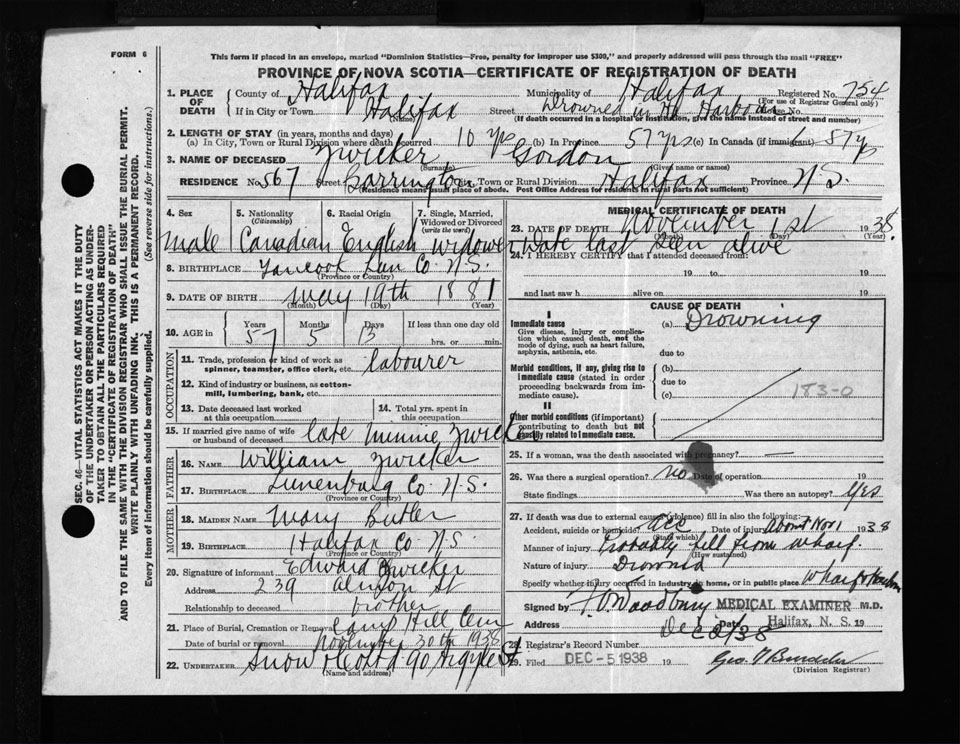 FORM 6
This form if placed in an envelope, marked "Dominion Statistics—Free, penalty for improper use $300," and properly addressed will pass through the mail "FREE"
PROVINCE OF NOVA SCOTIA—CERTIFICATE OF REGISTRATION OF DEATH
SEC. 46—VITAL STATISTICS ACT MAKES IT THE DUTY
OF THE UNDERTAKER OR PERSON ACTING AS UNDER-
TAKER TO OBTAIN ALL THE PARTICULARS REQUIRED
IN THE "CERTIFICATE OF REGISTRATION OF DEATH"
AND TO FILE THE SAME WITH THE DIVISION REGISTRAR WHO SHALL ISSUE THE BURIAL PERMIT.
WRITE PLAINLY WITH UNFADING INK. THIS IS A PERMANENT RECORD.
Every item of information should be carefully supplied. (See reverse side for instructions.)
1. PLACE OF DEATH County of Halifax Municipality of Halifax Registered No. 754
(For use of Registrar General only)
If in City or Town Halifax Street Drowned in Hx Harbour No.
(If death occurred in a hospital or institution, give the name instead of street and number)
2. LENGTH OF STAY (in years, months and days)
(a) In City, Town or Rural Division where death occurred 10 yrs (b) In Province 57 yrs (c) In Canada (if immigrant) 57 y
3. NAME OF DECEASED Zwicker Gordon
(Surname) (Given name or names)
RESIDENCE No. 567 Street Barrington City, Town or Rural Division Halifax Province N.S.
(Residence means usual place of abode. Post Office Address for residents in rural parts not sufficient)
4. Sex 5. Nationality (Citizenship) 6. Racial Origin 7. Single, Married, Widowed or Divorced (write the word)
male Canadian English widower
8. BIRTHPLACE Tancook Lun Co. N.S.
(Province or Country)
9. DATE OF BIRTH May 19th 1881
(Month) (Day) (Year)
10. AGE in Years Months Days If less than one day old
57 5 13 hrs. or min.
OCCUPATION
11. Trade, profession or kind of work as spinner, teamster, office clerk, etc. labourer
12. Kind of industry or business, as cotton-mill, lumbering, bank, etc.
13. Date deceased last worked at this occupation
14. Total yrs. spent in this occupation
15. If married give name of wife or husband of deceased late Minnie Zwicker
FATHER
16. NAME William Zwicker
17. BIRTHPLACE Lunenburg Co. N.S.
(Province or Country)
MOTHER
18. MAIDEN NAME Mary Butler
19. BIRTHPLACE Halifax Co N.S.
(Province or Country)
20. Signature of informant Edward Zwicker
Address 239 St
Relationship to deceased brother
21. Place of Burial, Cremation or Removal Camp Hill Cem
Date of burial or removal November 30th 1938
22. UNDERTAKER Snow & Co Ltd 90 Argyle St
(Name and address)
MEDICAL CERTIFICATE OF DEATH
23. DATE OF DEATH November 1st 1938
(Month) (Day) (Year)
Date last seen alive
24. I HEREBY CERTIFY that I attended deceased from:
19 to 19
and last saw h alive on 19
CAUSE OF DEATH
I
Immediate cause (a) Drowning
Give disease, injury or complication which caused death, not the mode of dying, such as heart failure, asphyxia, asthenia, etc.
due to
Morbid conditions, if any, giving rise to immediate cause (stated in order proceeding backwards from immediate cause).
(b)
due to
(c) 183-0
II
Other morbid conditions (if important) contributing to death but not causally related to immediate cause.
25. If a woman, was the death associated with pregnancy? —
26. Was there a surgical operation? no Date of operation 19
State findings Was there an autopsy? yes
27. If death was due to external causes (violence) fill in also the following:
Accident, suicide or homicide? acc Date of injury About Nov 1 1938
(State which)
Manner of injury Probably fell from wharf.
(How sustained)
Nature of injury Drowned
Specify whether injury occurred in industry, in home, or in public place wharf
Signed by Woodbury MEDICAL EXAMINER M.D.
Address Date Halifax, N. S. 19
Dec 2/38
28. Registrar's Record Number
29. Filed DEC -5 1938 19
(Division Registrar)